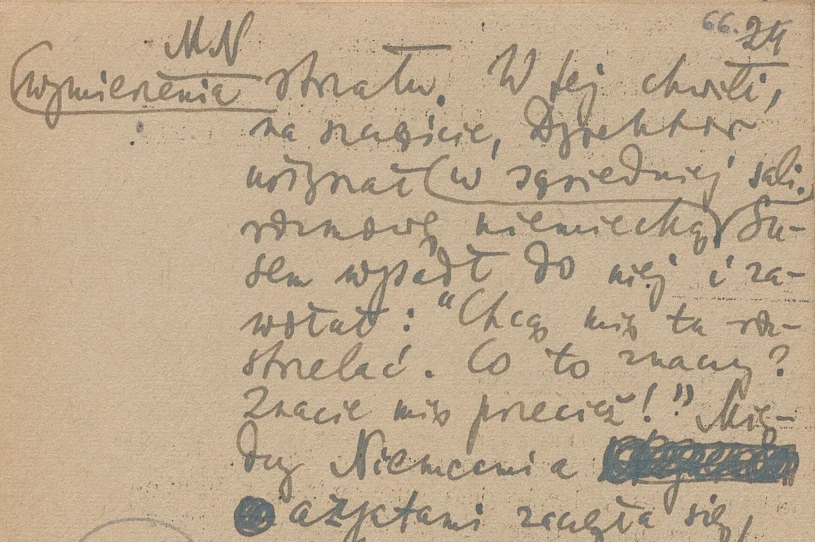 MN 66. 24
wymierzenia strzału. W tej chwili,
na szczęście, Dyrektor
usłyszał w sąsiedniej sali
rozmowę niemiecką. Su-
sem wypadł do niej i za-
wołał: "Chcą mię tu roz-
strzelać. Co to znaczy?
Znacie mię przecież!" Mię-
dzy Niemcami a
azjatami zaczęła się,